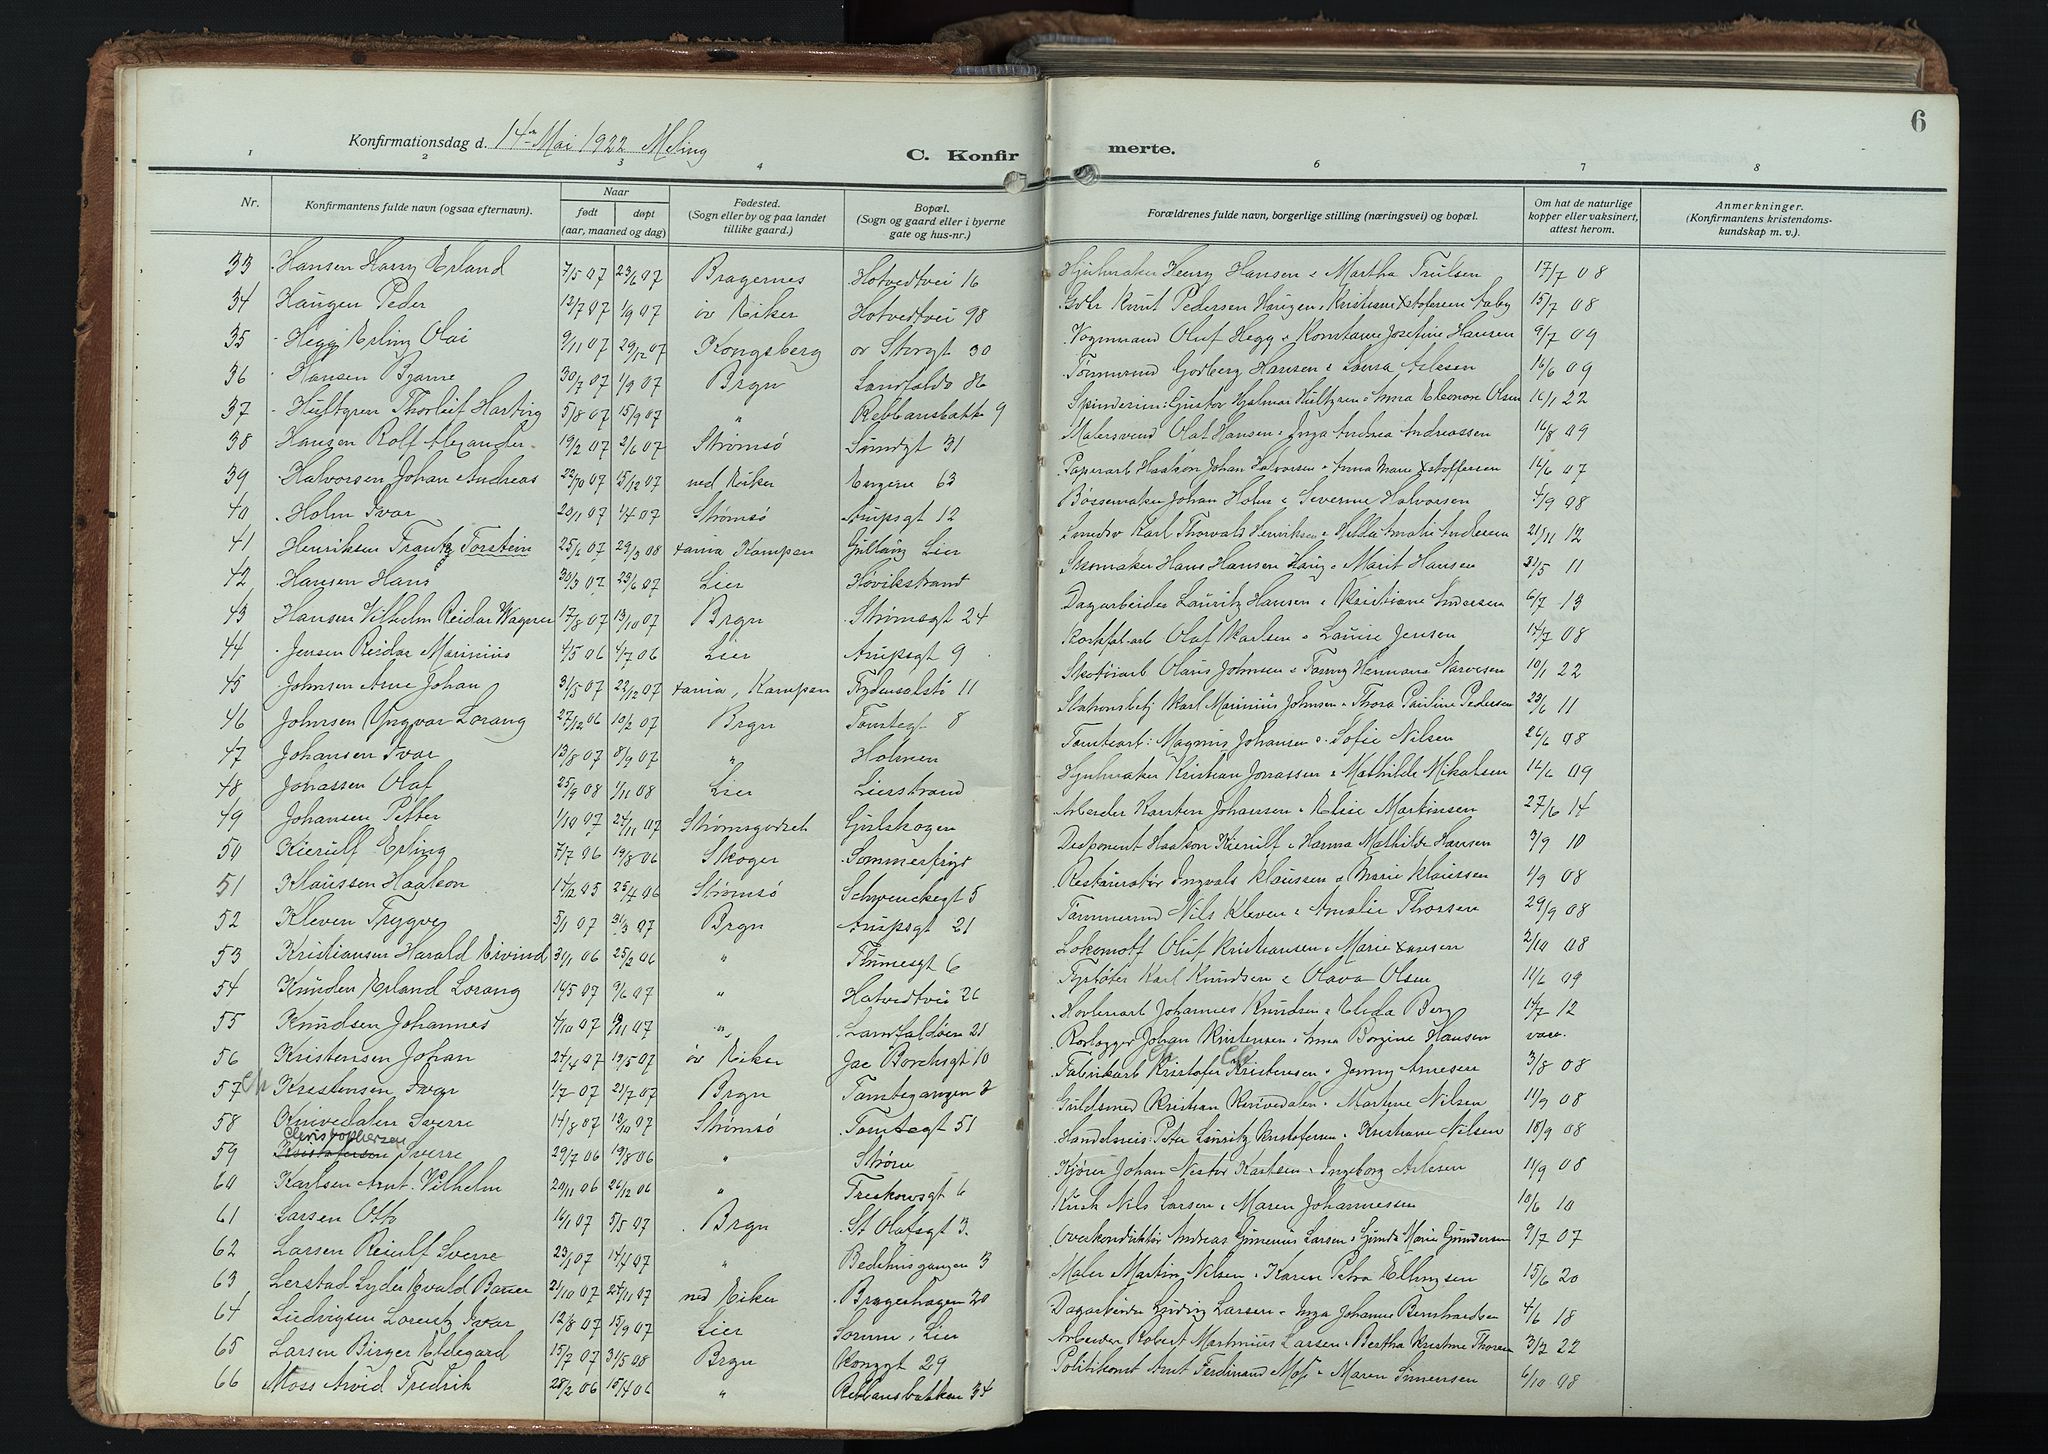 6
Konfirmationsdag d. 14de Mai 1922 Meling
C. Konfirmerte.
1 2 3 4 6 7 8
Nr. Konfirmantens fulde navn (ogsaa efternavn). Naar født døpt (aar, maaned og dag) Fødested. (Sogn eller by og paa landet tillike gaard.) Bopæl. (Sogn og gaard eller i byerne gate og hus-nr.) Forældrenes fulde navn, borgerlige stilling (næringsvei) og bopæl. Om hat de naturlige kopper eller vaksinert, attest herom. Anmerkninger. (Konfirmantens kristendomskundskap m. v.).
33 Hansen Harry Erland 7/5 07 23/6 07 Bragernes Hotvedtvei 16 Hjulmaker Henry Hansen o Martha Trulsen 17/7 08
34 Haugen Peder 12/7 07 1/9 07 öv Eiker Hotvedtvei 98 Gbr Knut Pedersen Haugen o Kristiane Xstofersen Aaby 15/7 08
35 Hegg Erling Olai 9/11 07 29/12 07 Kongsberg øv Storgt 30 Vognmand Oluf Hegg o Konstanse Josefine Hansen 9/7 09
36 Hansen Bjarne 30/7 07 1/9 07 Brgn Landfaldø 86 Tømmermd Godberg Hansen o Laura Aslesen 16/6 09
37 Hultgren Thorleif Harting 5/8 07 15/9 07 " Rebbansbakk 9 Gustov Hjalmar Hultgren o Anna Eleonore Olsen 16/1 22
38 Hansen Rolf Alexander 19/2 07 2/6 07 Strømsö Sundgt 31 Malersvend Olaf Hansen o Inga Andrea Andreassen 16/8 09
39 Halvorsen Johan Andreas 22/10 07 15/12 07 ned Eiker Engene 63 Paperarb Haakon Johan Halvorsen o Anna Marie Xstoffersen 14/6 07
40 Holm Ivar 20/1 07 1/4 07 Strømsö Aupsgt 12 Bøssemaker Johan Holm o Severine Halvorsen 4/9 08
41 Henriksen Frantz Torstein 25/6 07 29/3 08 xania Kampen Gullaug Lier Smedsv Karl Thorvald Henriksen o Hilda Amalie Andersen 21/11 12
42 Hansen Hans 30/3 07 23/6 07 Lier Høvikstrand Skomaker Hans Hansen Haug o Marit Hansen 31/5 11
43 Hansen Vilhelm Reidar Wagner 17/8 07 13/10 07 Brgn Strømsgt 24 Dagarbeider Lauritz Hansen o Kristiane Andersen 6/7 13
44 Jensen Reidar Marinius 4/5 06 4/7 06 Lier Aupsgt 9 Olaf Karlsen o Lauise Jensen 14/7 08
45 Johnsen Arne Johan 31/5 07 22/12 07 xania, Kampen Tydensalstö 11 Skotöiarb Olaus Johnsen o Fanny Hermana Narvesen 10/1 22
46 Johnsen Yngvar Lorang 27/12 06 10/2 07 Brgn Tomtegt 8 Stationsbetj Karl Marinius Johnsen o Thora Pauline Pedersen 23/6 11
47 Johansen Ivar 13/8 07 8/9 07 " Holmen Tomtearb: Magnus Johansen o Sofie Nilsen 26/6 08
48 Johassen Olaf 25/9 08 1/11 08 Lier Lierstrand Hjulmaker Kristian Jonassen o Mathilde Mikalsen 14/6 09
49 Johansen Petter 1/10 07 24/11 07 Strømsgodset Gulskogen Arbeider Karsten Johansen o Elise Martinsen 27/6 14
50 Kierulf Erling 7/7 06 19/8 06 Skoger Sommerfryd Disponent Haakon Kierulf o Hanna Mathilde Hansen 3/9 10
51 Klaussen Haakon 14/12 05 25/4 06 Strømsö Schwenckegt 5 Restauratør Ingvald Klaussen o Marie Klaussen 1/9 08
52 Kleven Trygve 5/1 07 31/3 07 Brgn Aupsgt 21 Tømmermd Nils Kleven o Amalie Thorsen 29/9 08
53 Kristiansen Harald Eivind 31/1 06 25/2 06 " Thumesgt 6 Lokomotf Oluf Kristiansen o Marie Xansen 2/10 08
54 Knuden Erland Lorang 14/5 07 9/6 07 " Hotvedtvei 26 Fyrbøter Karl Knudsen o Olava Olsen 11/6 09
55 Knudsen Johannes 4/10 07 /11 07 " Landfaldöen 21 Hovleriarb Johannes Knudsen o Elida Berg 14/7 12
56 Kristensen Johan 24/4 07 19/5 07 öv Eiker Jac Borchsgt 10 Rørlægger Johan Kristensen o Anna Borgine Hansen vacc.
57 Ch Kristensen Ivar 1/7 07 21/7 07 Brgn Tomtegangen 2 Fabrikarb Kristofer Kristensen o Jenny Arnesen 3/8 08
58 Knivedalen Sverre 14/8 07 13/10 07 Strømsö Tomtegt 51 Guldsmed Kristian Knivedalen o Martine Nilsen 11/9 08
Christophersen
59 Kristofersen Sverre 29/7 06 19/8 06 " Strøm Handelsreis: Peter Lauritz Kristofersen o Kristiane Nilsen 18/9 08
60 Karlsen Arnt Vilhelm 20/11 06 26/12 06 " Treskowsgt 6 Kjører Johan Nestor Karlsen o Ingeborg Aslesen 11/9 08
61 Larsen Otto 16/1 07 5/5 07 Brgn St Olafsgt 3. Kusk Nils Larsen o Maren Johannessen 10/6 10
62 Larsen Reiulf Sverre 23/1 07 14/4 07 " Bedehusgangen 3 Overkonduktör Andreas Gunerius Larsen o Gunda Marie Gundersen 9/7 07
63 Lerstad Lyder Evald Bauer 21/10 07 24/11 07 ned Eiker Brageshagen 20 Maler Martin Nilsen o Karen Petra Ellingsen 15/6 20
64 Ludvigsen Lorentz Ivar 12/8 07 15/9 07 Lier Sorum, Lier Dagarbeider Ludvig Larsen o Inga Johanne Bernhardsen 4/6 18
65 Larsen Birger Eldegard 15/7 07 31/5 08 Brgn Kongsgt 29 Arbeider Robert Martinius Larsen o Bertha Kristine Thorsen 3/2 22
66 Moss Arvid Fredrik 28/2 06 15/4 06 " Rebbansbakken 34 Politikonst Arnt Ferdinand Moss o Maren Simensen 6/10 08